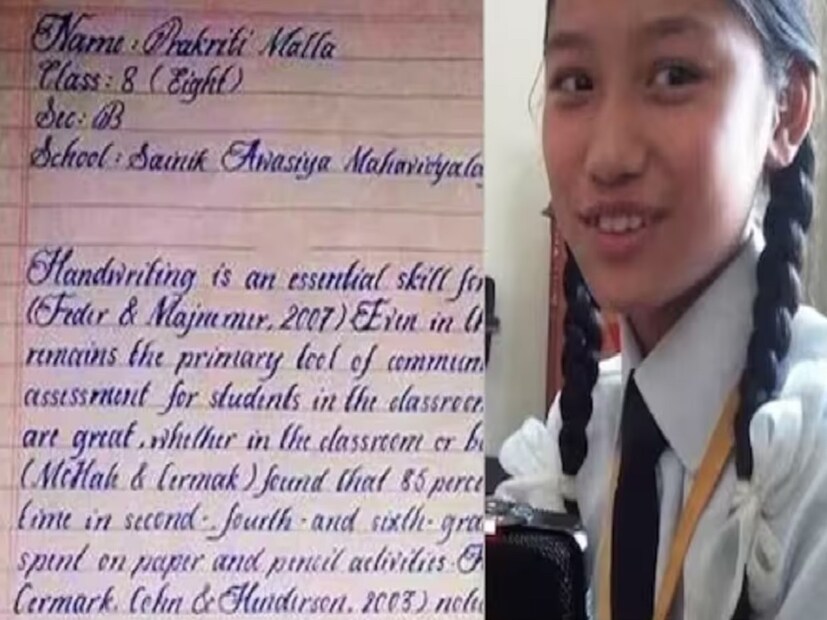 Name : Prakriti Malla
Class : 8 (Eight)
Sec : B
School : Sainik Awasiya Mahavidyala
Handwriting is an essential skill for
(Feder & Majnemer, 2007) Even in th
remains the primary tool of commun
assessment for students in the classroom
are great, whether in the classroom or
(McHale & Cermak) found that 85 perce
time in second-, fourth-and sixth-gra
spent on paper and pencil activities.
Cermark, Cohn & Henderson, 2003)